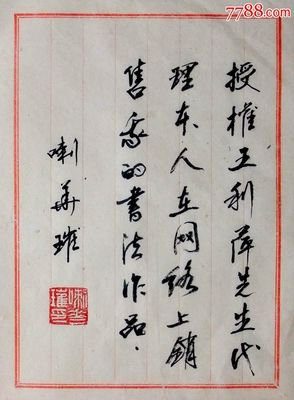 7788.com
授權王利萍先生代
理本人在网络上銷
售我的書法作品.
喇華璀